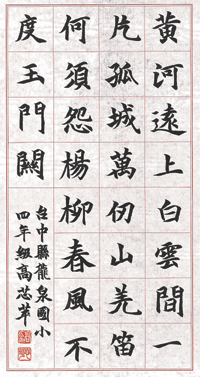 黃河遠上白雲間一
片孤城萬仞山羌笛
何須怨楊柳春風不
度玉門關
台中縣龍泉國小
四年級高芯苹